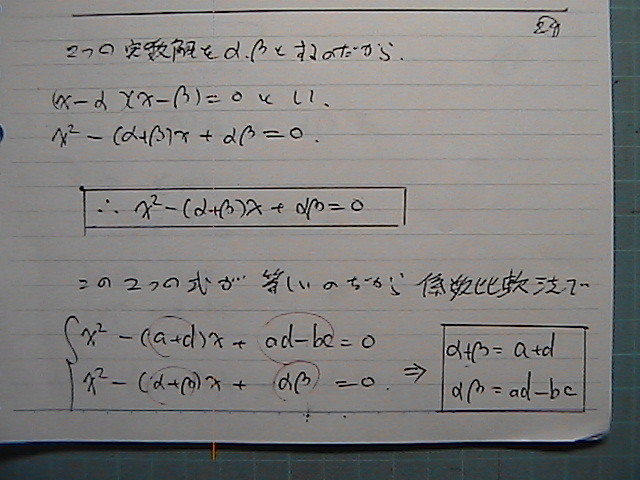 24
2つの実数解をα.βとするのだから.
(x-α)(x-β)=0 とし1.
x²-(α+β)x+αβ=0.
∴ x²-(α+β)x+αβ=0
この2つの式が 等しいのだから 係数比較法で
x²-(a+d)x+ad-bc=0
x²-(α+β)x+αβ=0. ⇒
α+β=a+d
αβ=ad-bc